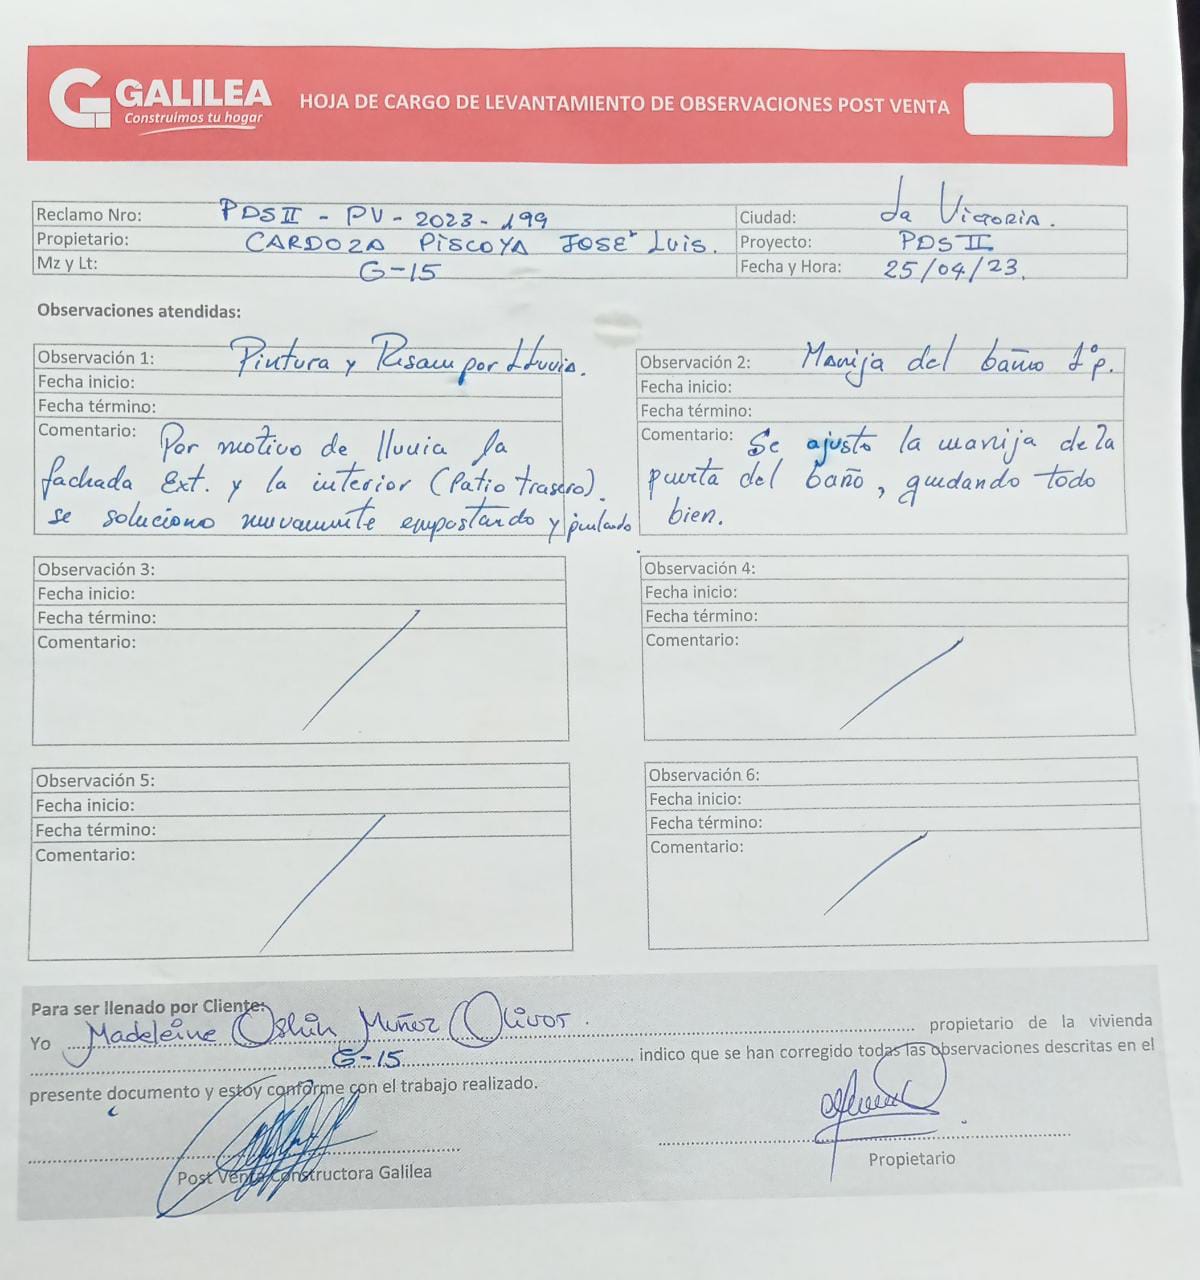 GALILEA
Construimos tu hogar
HOJA DE CARGO DE LEVANTAMIENTO DE OBSERVACIONES POST VENTA
Reclamo Nro: PDS II - PV - 2023 - 199
Ciudad: La Victoria.
Propietario: CARDOZA PISCOYA JOSÉ LUIS.
Proyecto: PDS II
Mz y Lt: G-15
Fecha y Hora: 25/04/23.
Observaciones atendidas:
Observación 1: Pintura y Resam por Lluvia.
Fecha inicio:
Fecha término:
Comentario: Por motivo de lluvia la
fachada Ext. y la interior (Patio trasero).
se soluciono nuevamente empastando y pintando
Observación 2: Manija del baño 1° p.
Fecha inicio:
Fecha término:
Comentario: Se ajusto la manija de la
puerta del baño, quedando todo
bien.
Observación 3:
Fecha inicio:
Fecha término:
Comentario:
Observación 4:
Fecha inicio:
Fecha término:
Comentario:
Observación 5:
Fecha inicio:
Fecha término:
Comentario:
Observación 6:
Fecha inicio:
Fecha término:
Comentario:
Para ser llenado por Cliente:
Yo Madeleine Oshin Muñoz Olivos. propietario de la vivienda
G-15 indico que se han corregido todas las observaciones descritas en el
presente documento y estoy conforme con el trabajo realizado.
Post Venta Constructora Galilea
Propietario